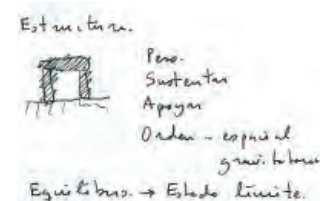 Estructura.
Peso.
Sustentar
Apoyar
Orden - espacial
gravitatorio
Equilibrio. → Estado límite.